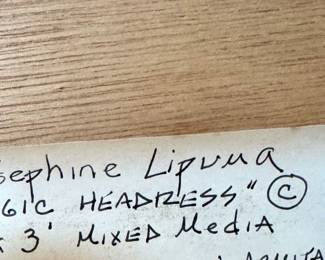 sephine Lipuma
GIC HEADRESS" ©
3' MIXED MEDIA